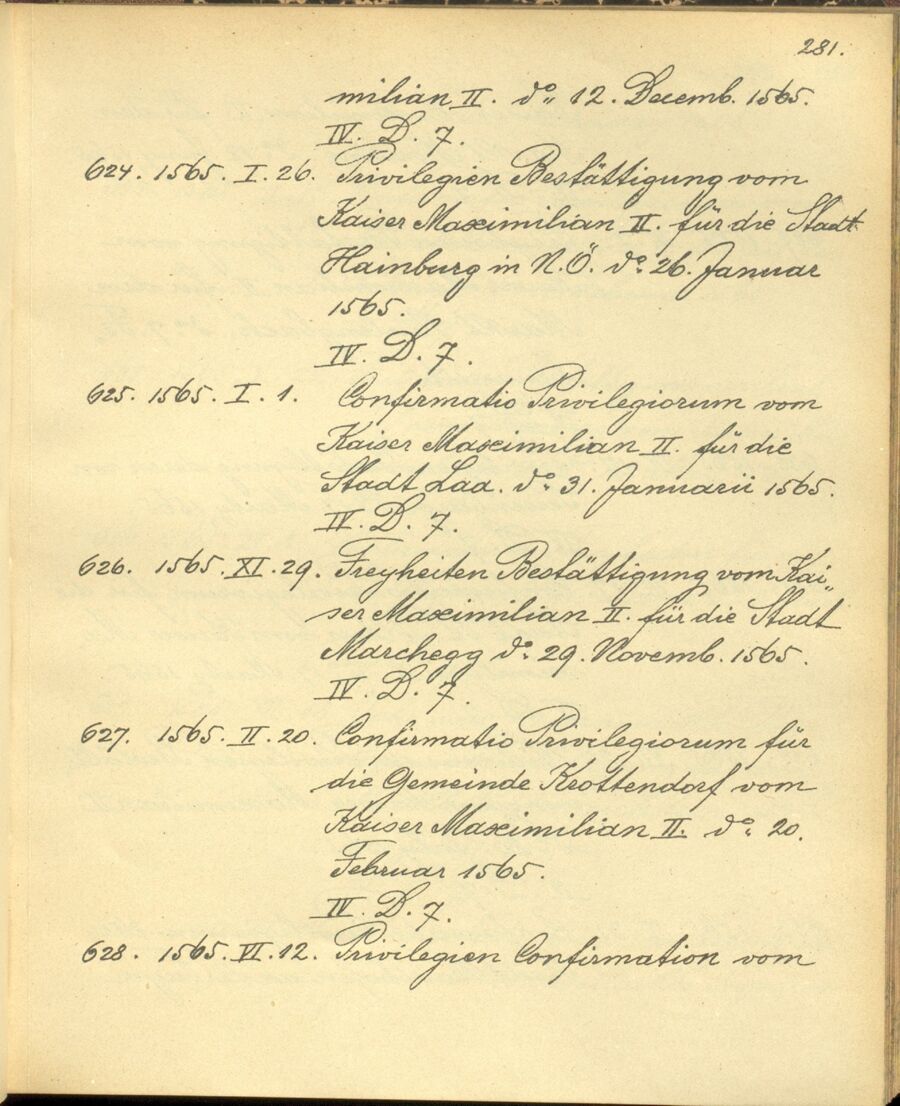 281.
milian II. d° 12. Decemb. 1565.
IV. D. 7.
624. 1565. I. 26. Privilegien Bestättigung vom
Kaiser Maximilian II. für die Stadt
Hainburg in N.Ö. d° 26. Januar
1565.
IV. D. 7.
625. 1565. I. 1. Confirmatio Privilegiorum vom
Kaiser Maximilian II. für die
Stadt Laa. d° 31. Januarii 1565.
IV. D. 7.
626. 1565. XI. 29. Freyheiten Bestättigung vom Kai„
ser Maximilian II. für die Stadt
Marchegg d° 29. Novemb. 1565.
IV. D. 7.
627. 1565. II. 20. Confirmatio Privilegiorum für
die Gemeinde Krottendorf vom
Kaiser Maximilian II. d° 20.
Februar 1565.
IV. D. 7.
628. 1565. VI. 12. Privilegien Confirmation vom